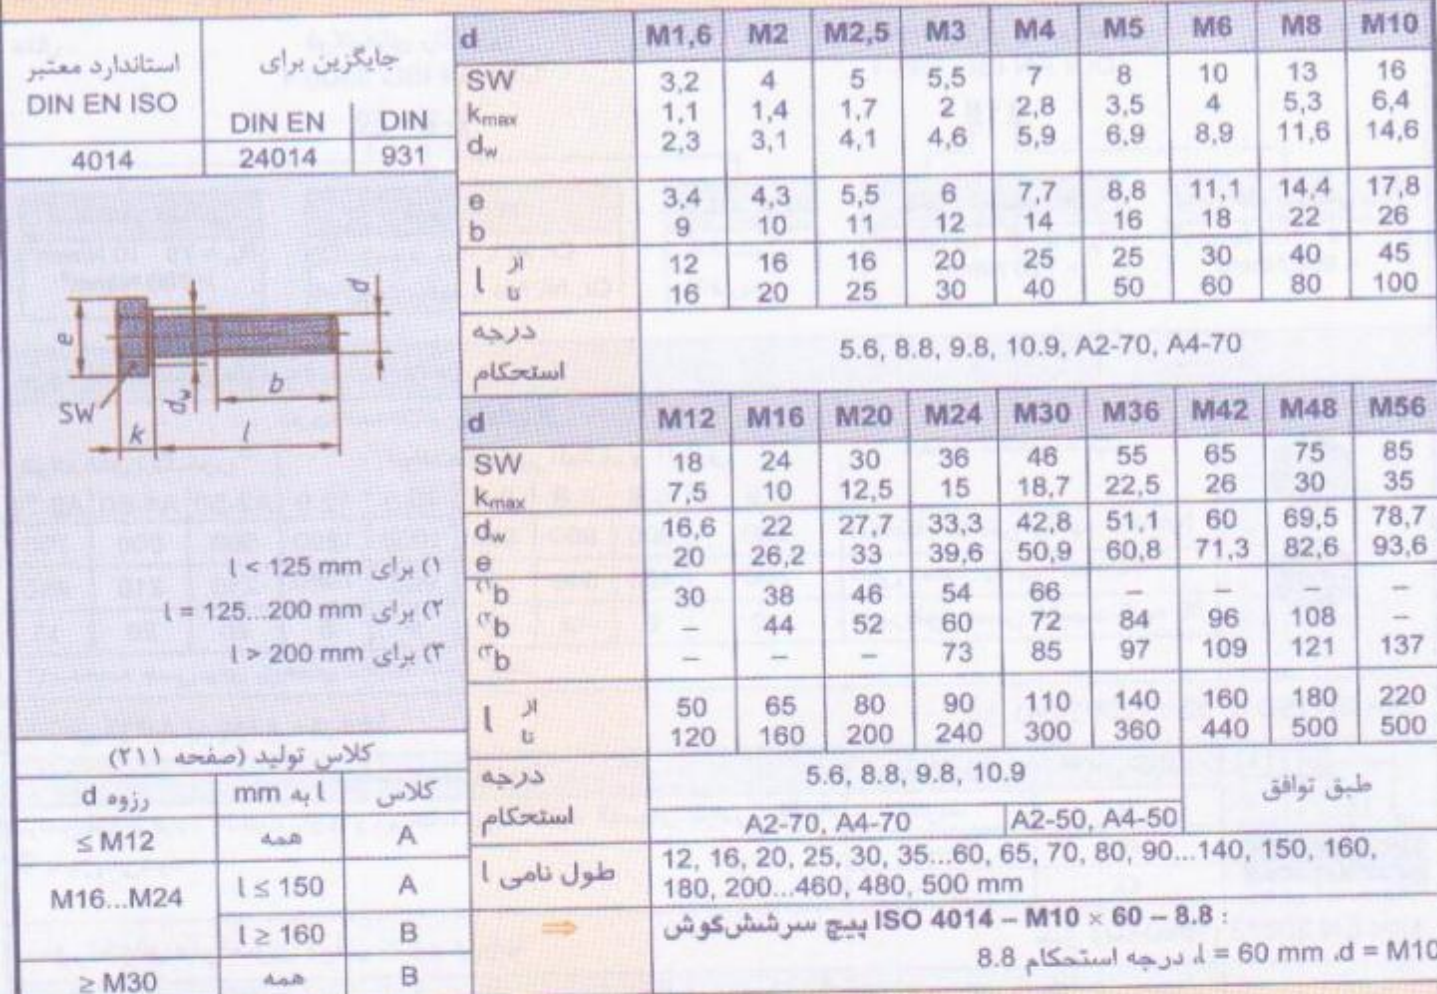 استاندارد معتبر
DIN EN ISO
جایگزین برای
DIN EN DIN
4014 24014 931
e
SW
k
l
d_w
b
d
۱) برای l < 125 mm
۲) برای l = 125...200 mm
۳) برای l > 200 mm
کلاس تولید (صفحه ۲۱۱)
رزوه d l به mm کلاس
≤ M12 همه A
M16...M24 l ≤ 150 A
l ≥ 160 B
≥ M30 همه B
d M1,6 M2 M2,5 M3 M4 M5 M6 M8 M10
SW 3,2 4 5 5,5 7 8 10 13 16
k_max 1,1 1,4 1,7 2 2,8 3,5 4 5,3 6,4
d_w 2,3 3,1 4,1 4,6 5,9 6,9 8,9 11,6 14,6
e 3,4 4,3 5,5 6 7,7 8,8 11,1 14,4 17,8
b 9 10 11 12 14 16 18 22 26
l از 12 16 16 20 25 25 30 40 45
تا 16 20 25 30 40 50 60 80 100
درجه
استحکام
5.6, 8.8, 9.8, 10.9, A2-70, A4-70
d M12 M16 M20 M24 M30 M36 M42 M48 M56
SW 18 24 30 36 46 55 65 75 85
k_max 7,5 10 12,5 15 18,7 22,5 26 30 35
d_w 16,6 22 27,7 33,3 42,8 51,1 60 69,5 78,7
e 20 26,2 33 39,6 50,9 60,8 71,3 82,6 93,6
۱)b 30 38 46 54 66 – – – –
۲)b – 44 52 60 72 84 96 108 –
۳)b – – – 73 85 97 109 121 137
l از 50 65 80 90 110 140 160 180 220
تا 120 160 200 240 300 360 440 500 500
درجه
استحکام
5.6, 8.8, 9.8, 10.9
طبق توافق
A2-70, A4-70 A2-50, A4-50
طول نامی l
12, 16, 20, 25, 30, 35...60, 65, 70, 80, 90...140, 150, 160,
180, 200...460, 480, 500 mm
⇒ پیچ سرشش‌گوش ISO 4014 – M10 × 60 – 8.8 :
d = M10، l = 60 mm، درجه استحکام 8.8